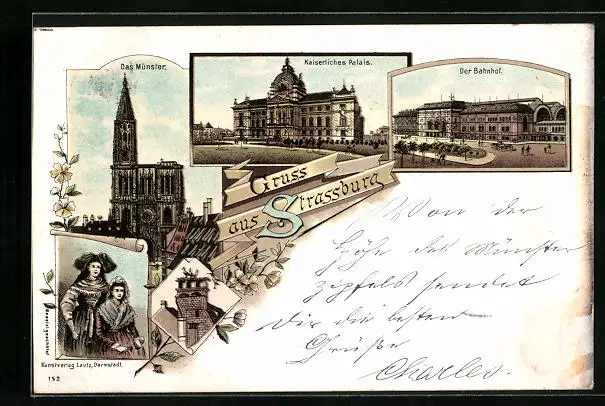 Das Münster.
Kaiserliches Palais.
Der Bahnhof.
Gruss
aus Strassburg
Von der
Höhe des Münster
zipfels sendet
Dir die besten
Grüße
Charles.
Kunstverlag Lautz, Darmstadt.
152